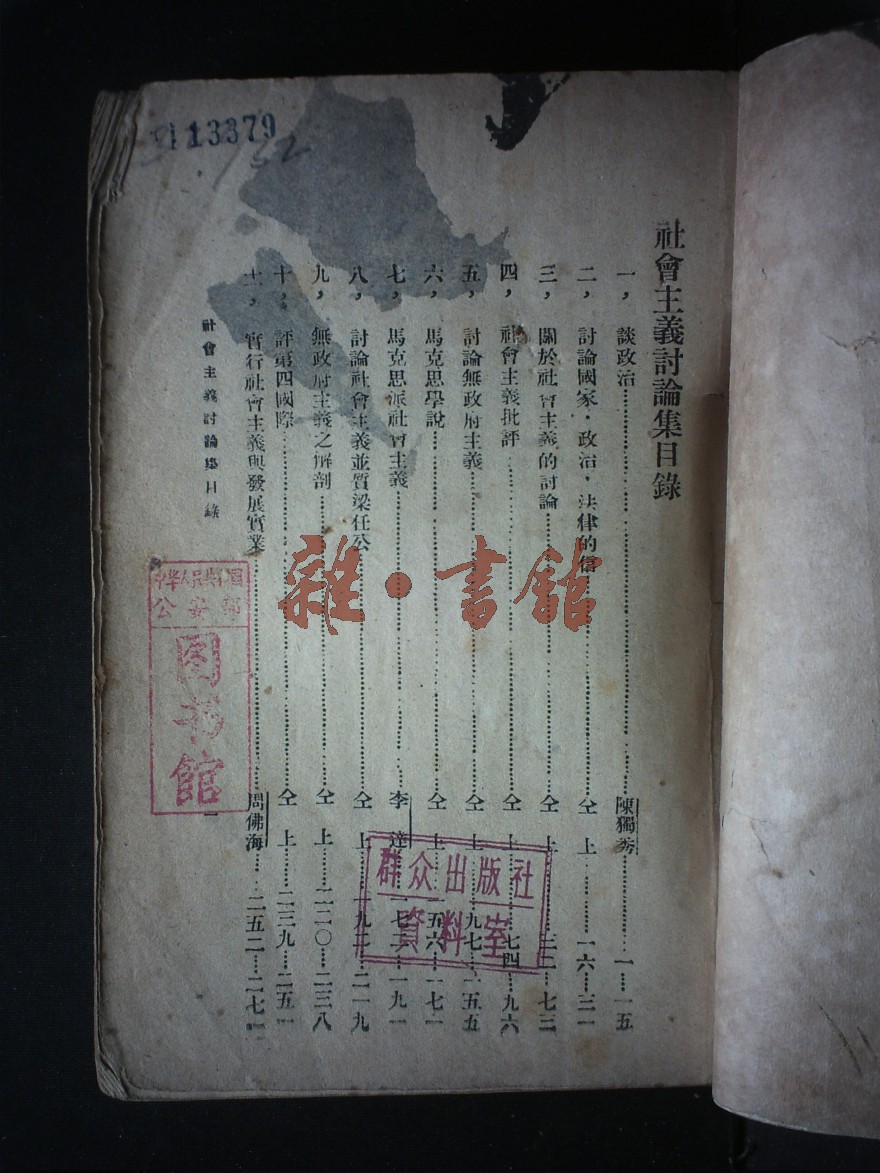 社會主義討論集目錄
一，談政治……陳獨秀……一……一五
二，討論國家，政治，法律的信……仝上……一六……三一
三，關於社會主義的討論……仝上……三二……七三
四，社會主義批評……仝上……七四……九六
五，討論無政府主義……仝上……九七……一五五
六，馬克思學說……仝上……一五六……一七一
七，馬克思派社會主義……李達……一七二……一九一
八，討論社會主義並質梁任公……仝上……一九二……二一九
九，無政府主義之解剖……仝上……二二〇……二三八
十，評第四國際……仝上……二三九……二五一
十一，實行社會主義與發展實業……周佛海……二五二……二七一
社會主義討論集目錄
一
113379
雜·書館
公安部
图书馆
群众出版社
資料室